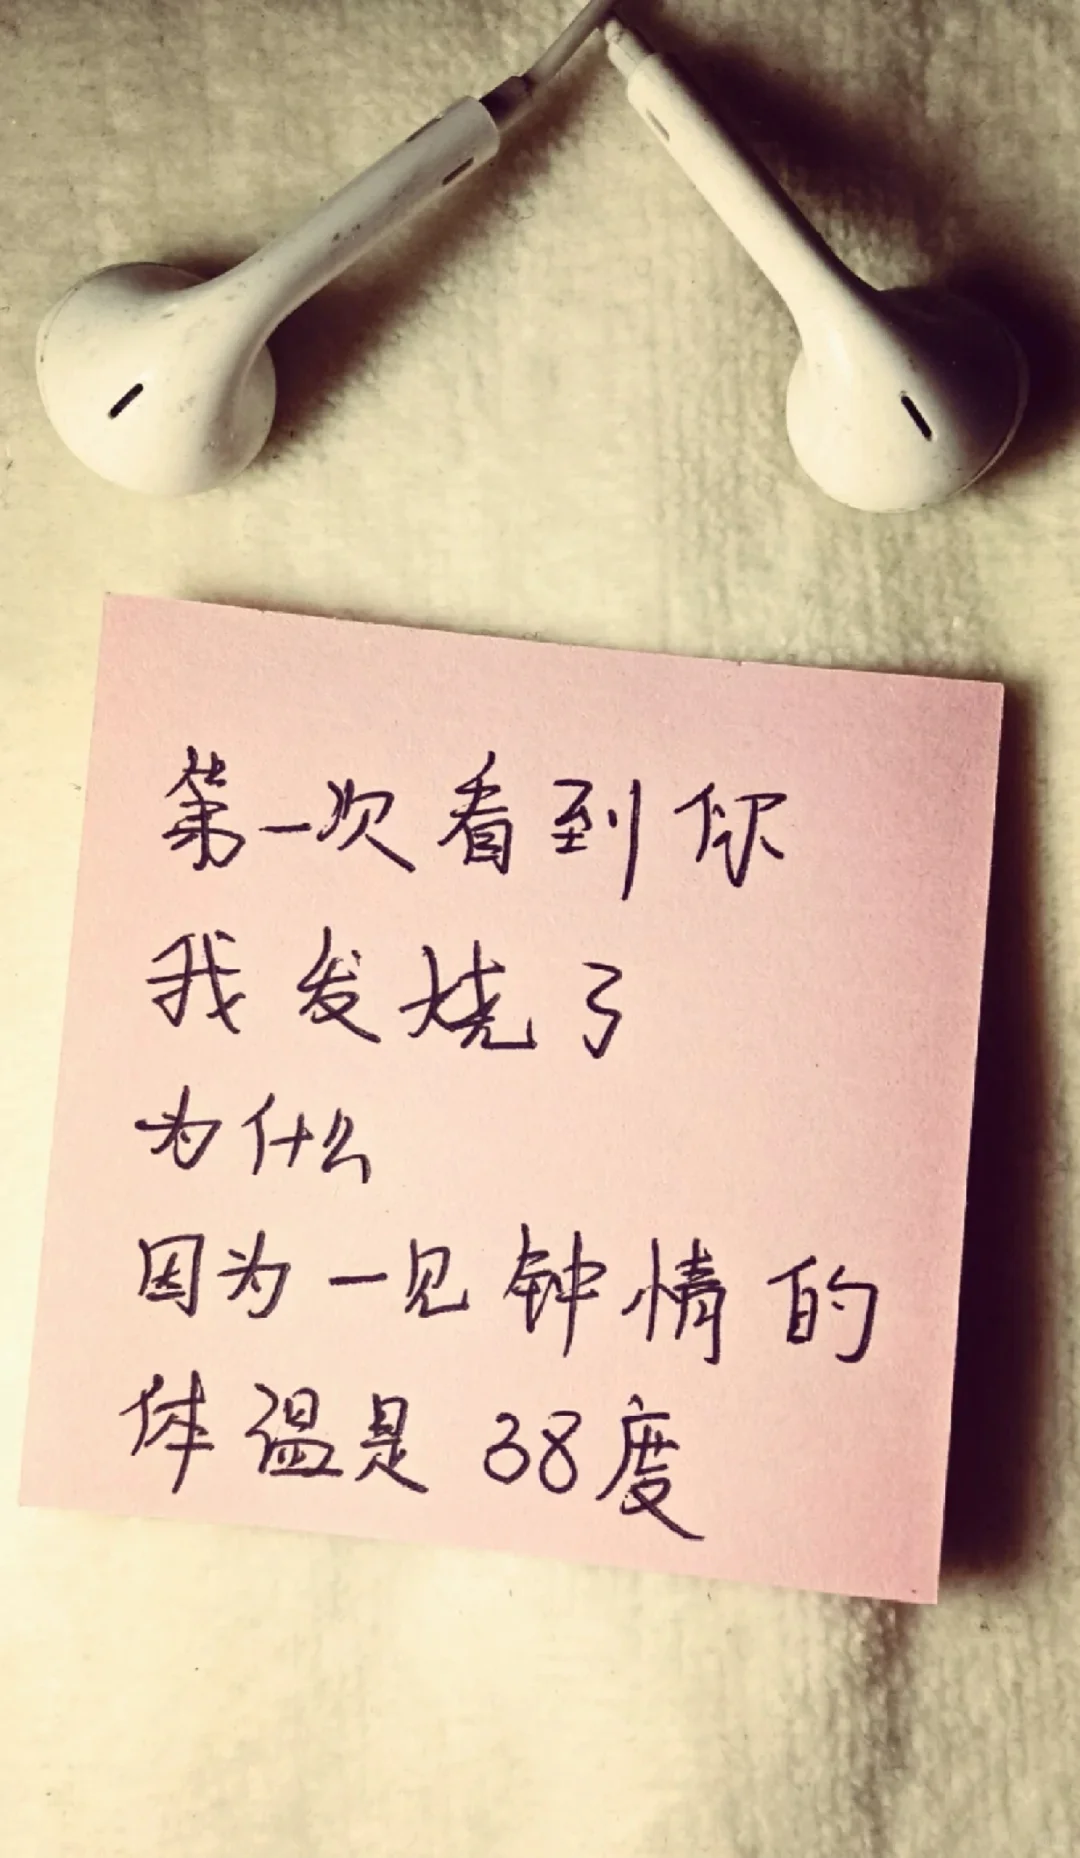 第一次看到你
我发烧了
为什么
因为一见钟情的
体温是38度